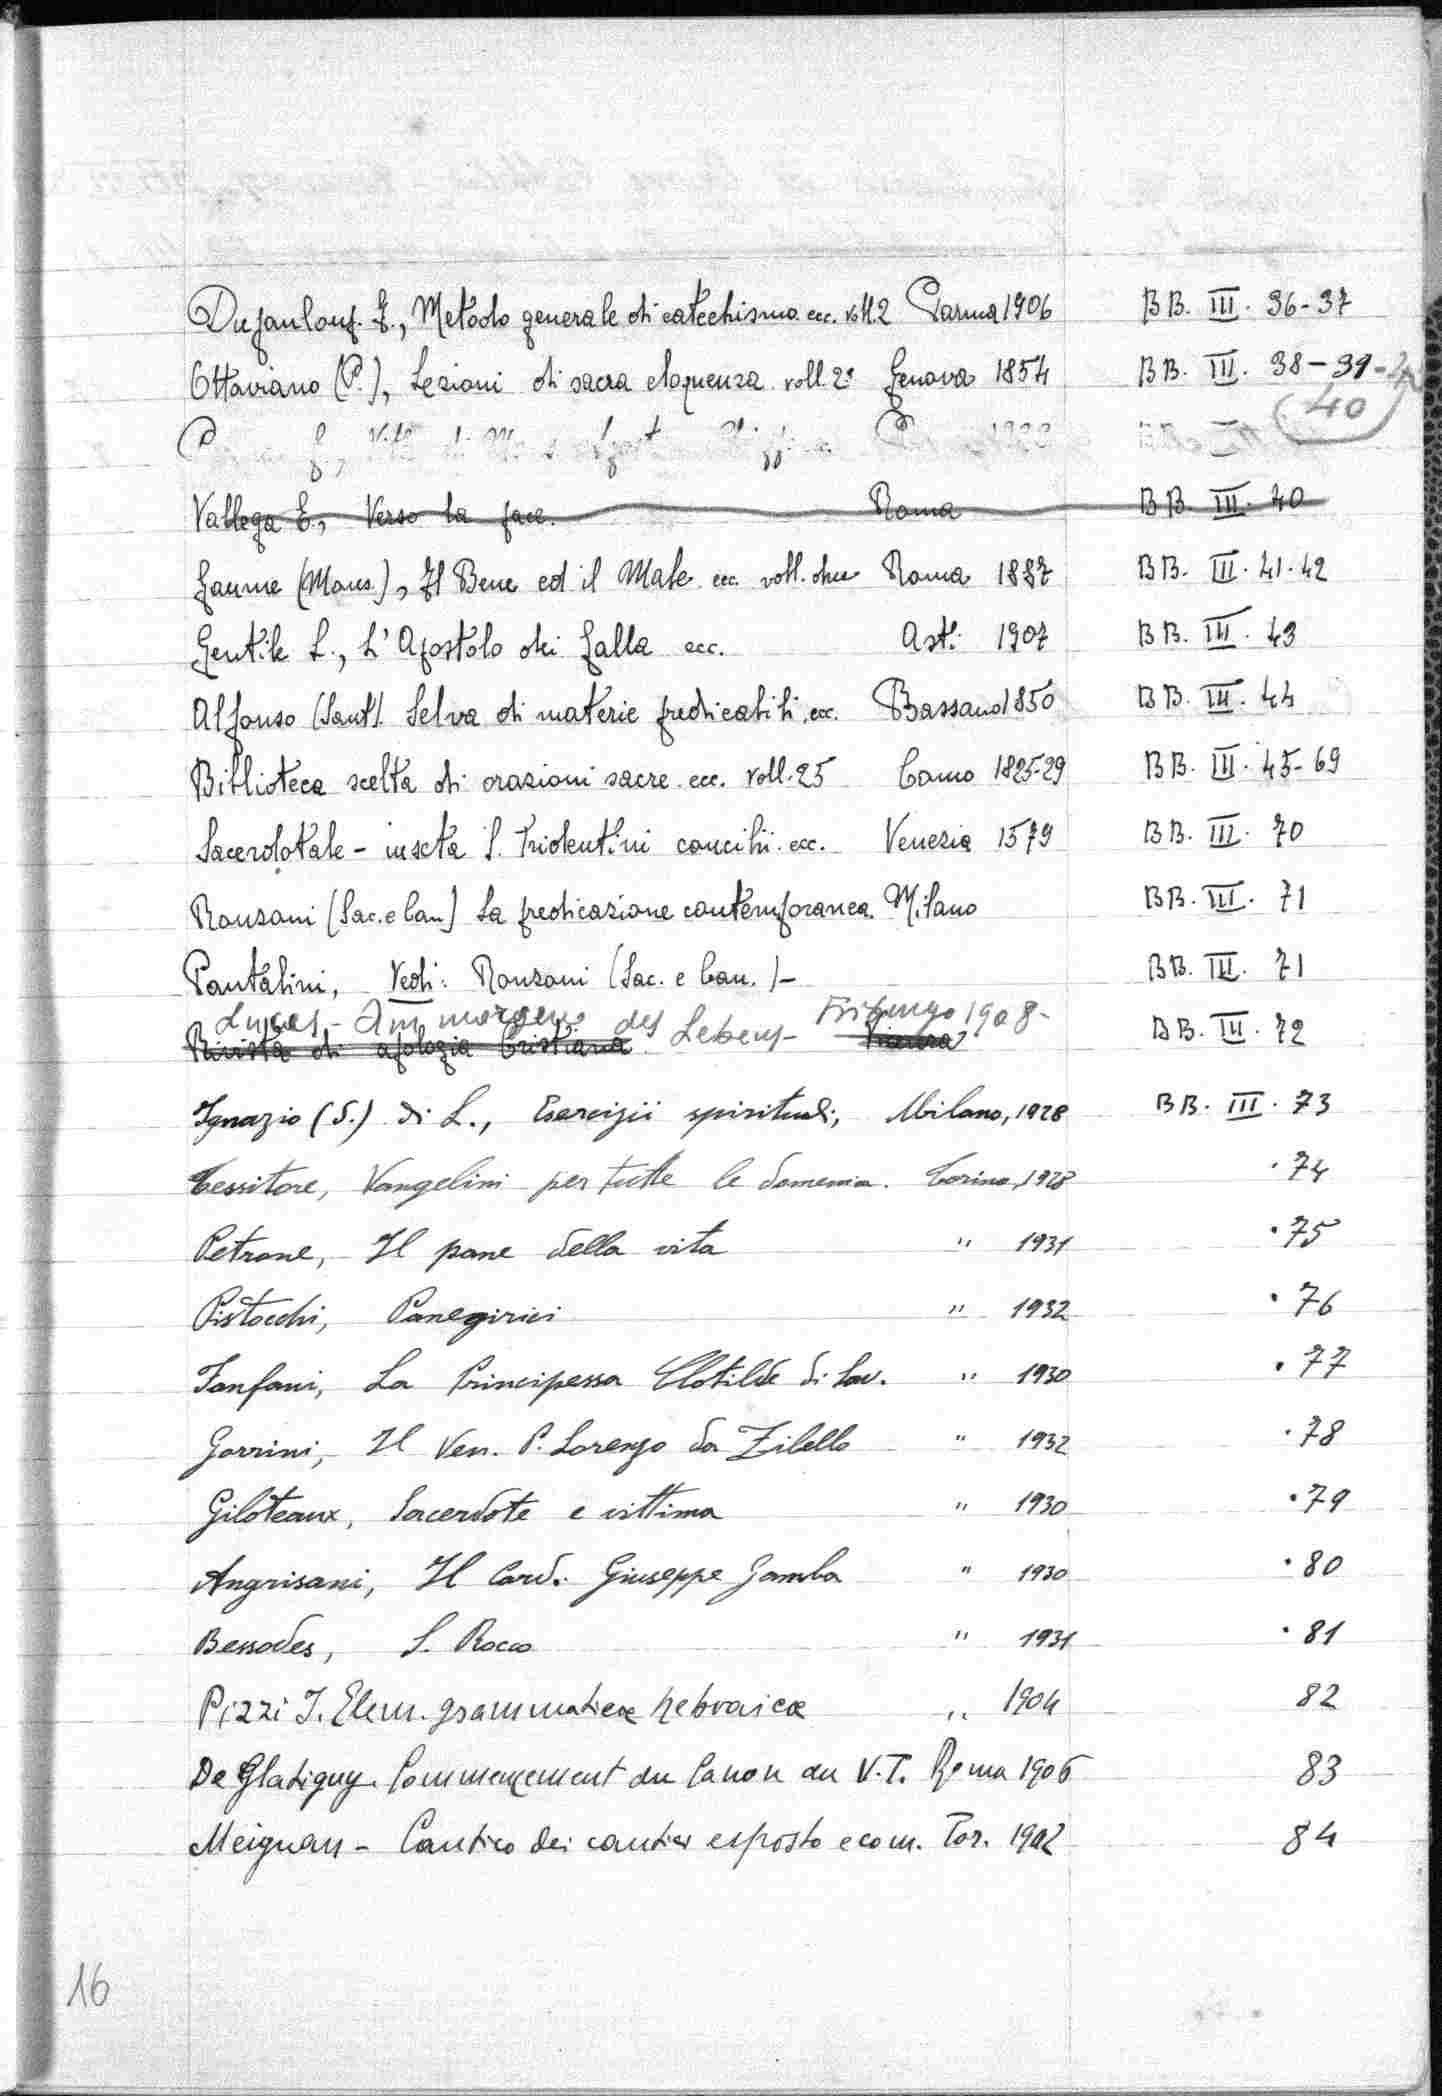 Dupanloup. F., Metodo generale di catechismo. ecc. voll. 2 Parma 1906 BB. III. 36-37
Ottaviano (P.), Lezioni di sacra eloquenza voll. 2 Genova 1854 BB. III. 38-39-40
40
Vallega E., Verso la pace. Roma BB. III. 40
Gaume (Mons.), Il Bene ed il Male. ecc. voll. due Roma 1887 BB. III. 41-42
Gentile L., L'Apostolo dei Galla ecc. Asti 1907 BB. III. 43
Alfonso (Sant'). Selva di materie predicabili, ecc. Bassano 1850 BB. III. 44
Biblioteca scelta di orazioni sacre. ecc. voll. 25 Como 1825-29 BB. III. 45-69
Sacerdotale - iuxta S. Tridentini concilii. ecc. Venezia 1579 BB. III. 70
Ronzani (Sac. e Can) La predicazione contemporanea. Milano BB. III. 71
Pantalini, Vedi: Ronzani (Sac. e Can.) - BB. III. 71
Lucas - Am morgens des Lebens - Friburgo 1908 -
Rivista di apologia Cristiana Vicenza BB. III. 72
Ignazio (S.) di L., Esercizii spirituali, Milano, 1928 BB. III. 73
Tessitore, Vangelini per tutte le domenica. Torino, 1928 . 74
Petrone, Il pane della vita " 1931 . 75
Pistocchi, Panegirici " 1932 . 76
Fanfani, La Principessa Clotilde di Sav. " 1930 . 77
Gorrini, Il Ven. P. Lorenzo da Zibello " 1932 . 78
Giloteaux, Sacerdote e vittima " 1930 . 79
Angrisani, Il Card. Giuseppe Gamba " 1930 . 80
Bessodes, S. Rocco " 1931 . 81
Pizzi I. Elem. grammaticæ hebraicæ " 1904 82
De Glatigny. Commencement du Canon du V.T. Roma 1906 83
Meignan - Cantico dei cantici esposto e com. Tor. 1902 84
16